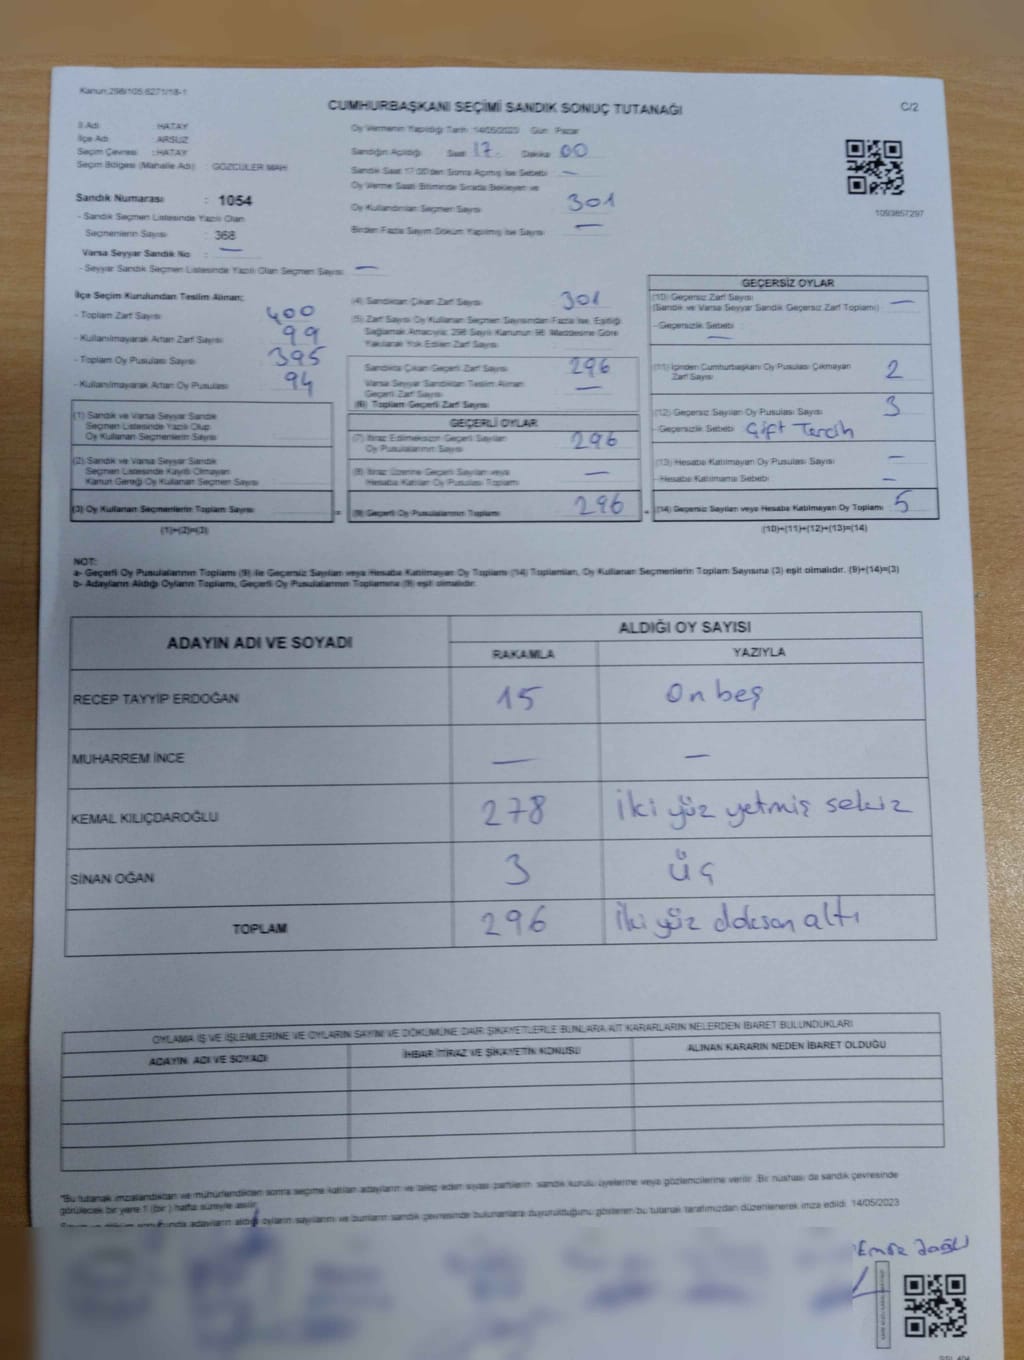 Kanun:298/105 6271/18-1
CUMHURBAŞKANI SEÇİMİ SANDIK SONUÇ TUTANAĞI
C/2
İl Adı : HATAY
İlçe Adı : ARSUZ
Seçim Çevresi : HATAY
Seçim Bölgesi (Mahalle Adı) : GÖZCÜLER MAH
Oy Vermenin Yapıldığı Tarih :14/05/2023 Gün : Pazar
Sandığın Açıldığı Saat 17 Dakika 00
Sandık Saat 17:00'den Sonra Açılmış İse Sebebi —
Oy Verme Saati Bitiminde Sırada Bekleyen ve
Oy Kullandırılan Seçmen Sayısı 301
Birden Fazla Sayım Döküm Yapılmış İse Sayısı —
1093857297
Sandık Numarası : 1054
- Sandık Seçmen Listesinde Yazılı Olan
Seçmenlerin Sayısı : 368
Varsa Seyyar Sandık No : —
- Seyyar Sandık Seçmen Listesinde Yazılı Olan Seçmen Sayısı —
İlçe Seçim Kurulundan Teslim Alınan;
- Toplam Zarf Sayısı 400
- Kullanılmayarak Artan Zarf Sayısı 99
- Toplam Oy Pusulası Sayısı 395
- Kullanılmayarak Artan Oy Pusulası 94
(1) Sandık ve Varsa Seyyar Sandık
Seçmen Listesinde Yazılı Olup
Oy Kullanan Seçmenlerin Sayısı
(2) Sandık ve Varsa Seyyar Sandık
Seçmen Listesinde Kayıtlı Olmayan
Kanun Gereği Oy Kullanan Seçmen Sayısı
(3) Oy Kullanan Seçmenlerin Toplam Sayısı =
(1)+(2)=(3)
(4) Sandıktan Çıkan Zarf Sayısı 301
(5) Zarf Sayısı Oy Kullanan Seçmen Sayısından Fazla İse, Eşitliği
Sağlamak Amacıyla; 298 Sayılı Kanunun 98. Maddesine Göre
Yakılarak Yok Edilen Zarf Sayısı
Sandıkta Çıkan Geçerli Zarf Sayısı 296
Varsa Seyyar Sandıktan Teslim Alınan
Geçerli Zarf Sayısı —
(6) Toplam Geçerli Zarf Sayısı
GEÇERLİ OYLAR
(7) İtiraz Edilmeksizin Geçerli Sayılan
Oy Pusulalarının Sayısı 296
(8) İtiraz Üzerine Geçerli Sayılan veya
Hesaba Katılan Oy Pusulası Toplamı —
(9) Geçerli Oy Pusulalarının Toplamı 296 +
GEÇERSİZ OYLAR
(10) Geçersiz Zarf Sayısı
(Sandık ve Varsa Seyyar Sandık Geçersiz Zarf Toplamı) —
- Geçersizlik Sebebi :
—
(11) İçinden Cumhurbaşkanı Oy Pusulası Çıkmayan
Zarf Sayısı 2
(12) Geçersiz Sayılan Oy Pusulası Sayısı 3
- Geçersizlik Sebebi Çift Tercih
(13) Hesaba Katılmayan Oy Pusulası Sayısı —
- Hesaba Katılmama Sebebi —
(14) Geçersiz Sayılan veya Hesaba Katılmayan Oy Toplamı 5
(10)+(11)+(12)+(13)=(14)
NOT:
a- Geçerli Oy Pusulalarının Toplamı (9) ile Geçersiz Sayılan veya Hesaba Katılmayan Oy Toplamı (14) Toplamları, Oy Kullanan Seçmenlerin Toplam Sayısına (3) eşit olmalıdır. (9)+(14)=(3)
b- Adayların Aldığı Oyların Toplamı, Geçerli Oy Pusulalarının Toplamına (9) eşit olmalıdır.
ADAYIN ADI VE SOYADI
ALDIĞI OY SAYISI
RAKAMLA YAZIYLA
RECEP TAYYİP ERDOĞAN 15 On beş
MUHARREM İNCE — —
KEMAL KILIÇDAROĞLU 278 İki yüz yetmiş sekiz
SİNAN OĞAN 3 üç
TOPLAM 296 İki yüz doksan altı
OYLAMA İŞ VE İŞLEMLERİNE VE OYLARIN SAYIM VE DÖKÜMÜNE DAİR ŞİKAYETLERLE BUNLARA AİT KARARLARIN NELERDEN İBARET BULUNDUKLARI
ADAYIN ADI VE SOYADI İHBAR İTİRAZ VE ŞİKAYETİN KONUSU ALINAN KARARIN NEDEN İBARET OLDUĞU
"Bu tutanak imzalandıktan ve mühürlendikten sonra seçime katılan adayların ve talep eden siyasi partilerin sandık kurulu üyelerine veya gözlemcilerine verilir. Bir nüshası da sandık çevresinde
görülecek bir yere 1 (bir ) hafta süreyle asılır.
adayların aldığı oyların sayılarını ve bunların sandık çevresinde bulunanlara duyurulduğunu gösteren bu tutanak tarafımızdan düzenlenerek imza edildi. 14/05/2023